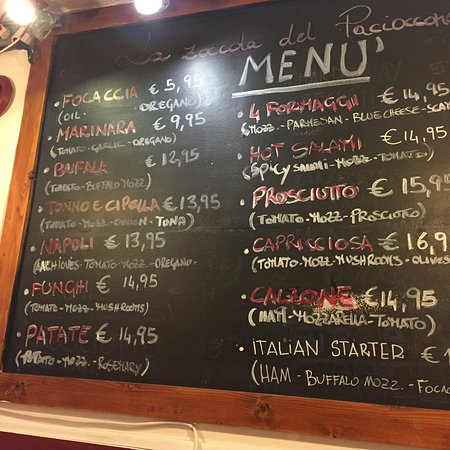 La Zoccola del Pacioccone
MENU'
• FOCACCIA € 5,95
(OIL. OREGANO)
• MARINARA € 9,95
(TOMATO-GARLIC-OREGANO)
• BUFALA € 12,95
(TOMATO-BUFFALO MOZZ)
• TONNO E CIPOLLA € 13,95
(TOMATO-MOZZ-ONION-TUNA)
• NAPOLI € 13,95
(ANCHIOVIES-TOMATO-MOZZ-OREGANO
• FUNGHI € 14,95
(TOMATO-MOZZ-MUSHROOMS)
• PATATE € 14,95
(POTATO-MOZZ-ROSEMARY)
• 4 FORMAGGI € 14,95
(MOZZ-PARMESAN-BLUE CHEESE-SCAM
• HOT SALAMI € 14,95
(SPICY SALAMI-MOZZ-TOMATO)
• PROSCIUTTO € 15,95
(TOMATO-MOZZ-PROSCIUTTO)
• CAPRICCIOSA € 16,9
(TOMATO-MOZZ-MUSHROOMS-OLIVES
• CALZONE € 14,95
(HAM-MOZZARELLA-TOMATO)
• ITALIAN STARTER € 1
(HAM-BUFFALO MOZZ.-FOCAC